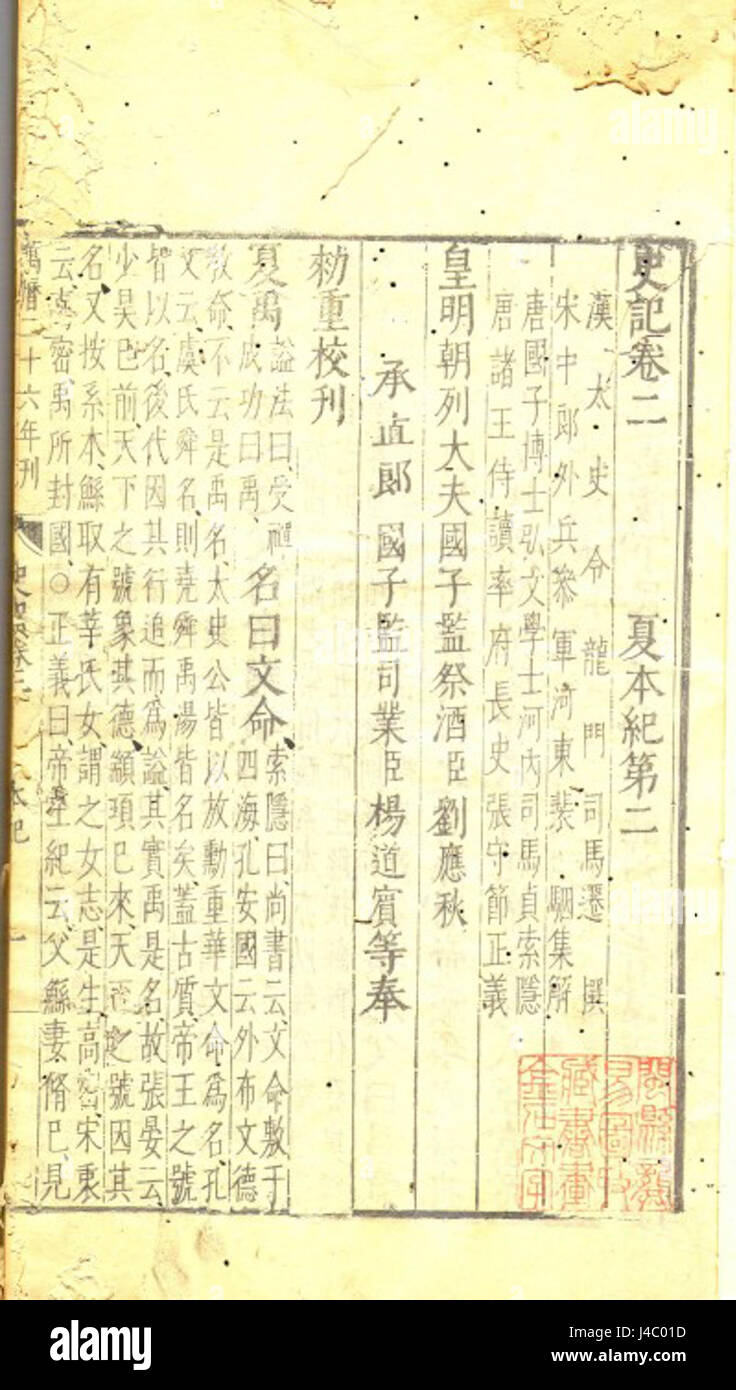 史記卷二 夏本紀第二
漢太史令龍門司馬遷撰
宋中郎外兵叅軍河東裴駰集解
唐國子博士弘文學士河內司馬貞索隱
唐諸王侍讀率府長史張守節正義
皇明朝列大夫國子監祭酒臣劉應秋
承直郎國子監司業臣楊道賓等奉
勑重校刊
夏禹
謚法曰、受禪
成功曰禹、
名曰文命、
索隱曰、尚書云、文命敷于
四海、孔安國云、外布文德
教命、不云是禹名、太史公皆以放勳重華文命為名、孔
文云、虞氏舜名、則堯舜禹湯皆名矣、蓋古質、帝王之號
皆以名、後代因其行追而為謚、其實禹是名、故張晏云
少昊巳前、天下之號象其德、顓頊巳來、天下之號因其
名、又按系本、鯀取有莘氏女、謂之女志、是生高密、宋衷
云、高密、禹所封國、○正義曰、帝王紀云、父鯀妻脩巳、見
萬曆二十六年刊
史記卷二
本紀
一
alamy
alamy
Image ID: J4C01D
www.alamy.com